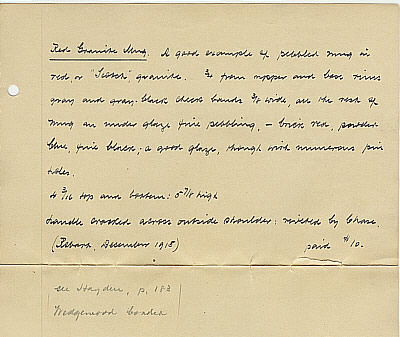 Red Granite Mug. A good example of pebbled mug in
red, or "Scotch" granite. 3/4 from upper and base rims
gray and gray-black check bands 3/8 wide, all the rest of
mug an under glaze fine pebbling, - brick red, powder
blue, fine black; - a good glaze, though with numerous pin
holes.
4 3/16 top and bottom: 5 7/8 high
Handle cracked across outside shoulder: riveted by Chase.
(Rebark, December 1918) paid $10.
see Hayden, p. 183
Wedgewood border